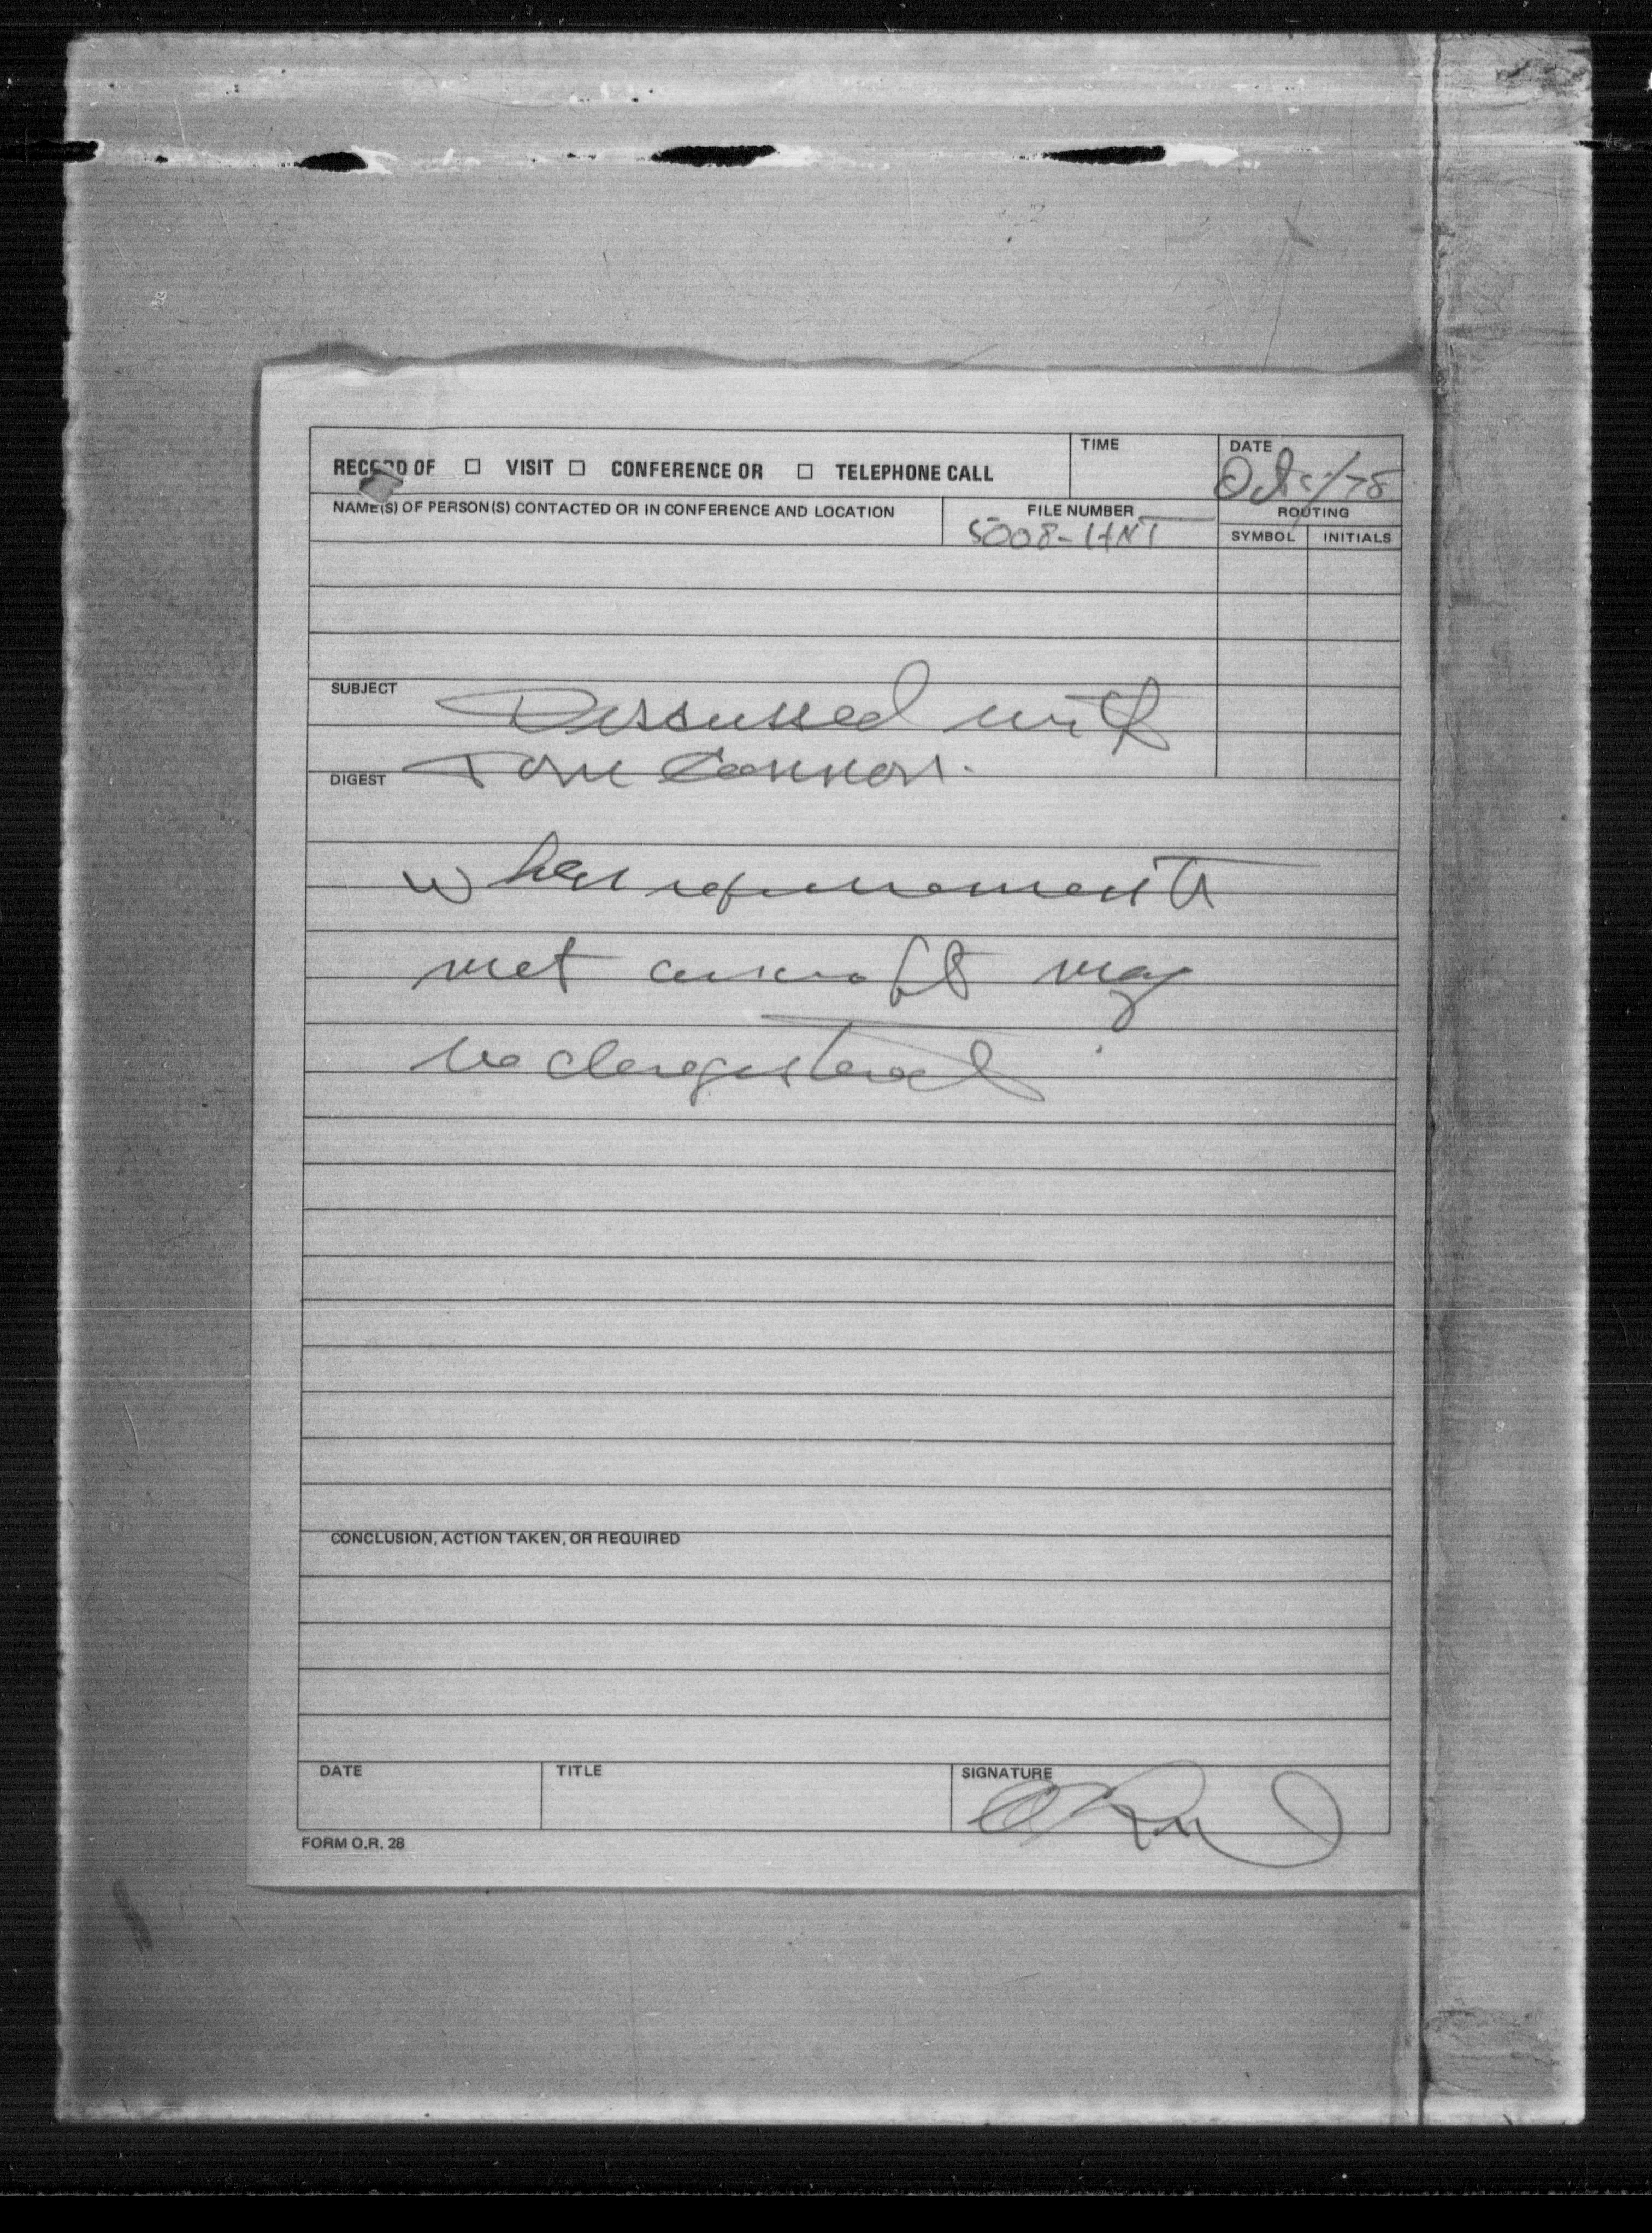 RECORD OF ☐ VISIT ☐ CONFERENCE OR ☐ TELEPHONE CALL
TIME
DATE
Oct /78
NAME(S) OF PERSON(S) CONTACTED OR IN CONFERENCE AND LOCATION
FILE NUMBER
5008-
ROUTING
SYMBOL INITIALS
SUBJECT
Discussed with
DIGEST
Tom Connors.
When requirements
met aircraft may
be deregistered
CONCLUSION, ACTION TAKEN, OR REQUIRED
DATE
TITLE
SIGNATURE
FORM O.R. 28